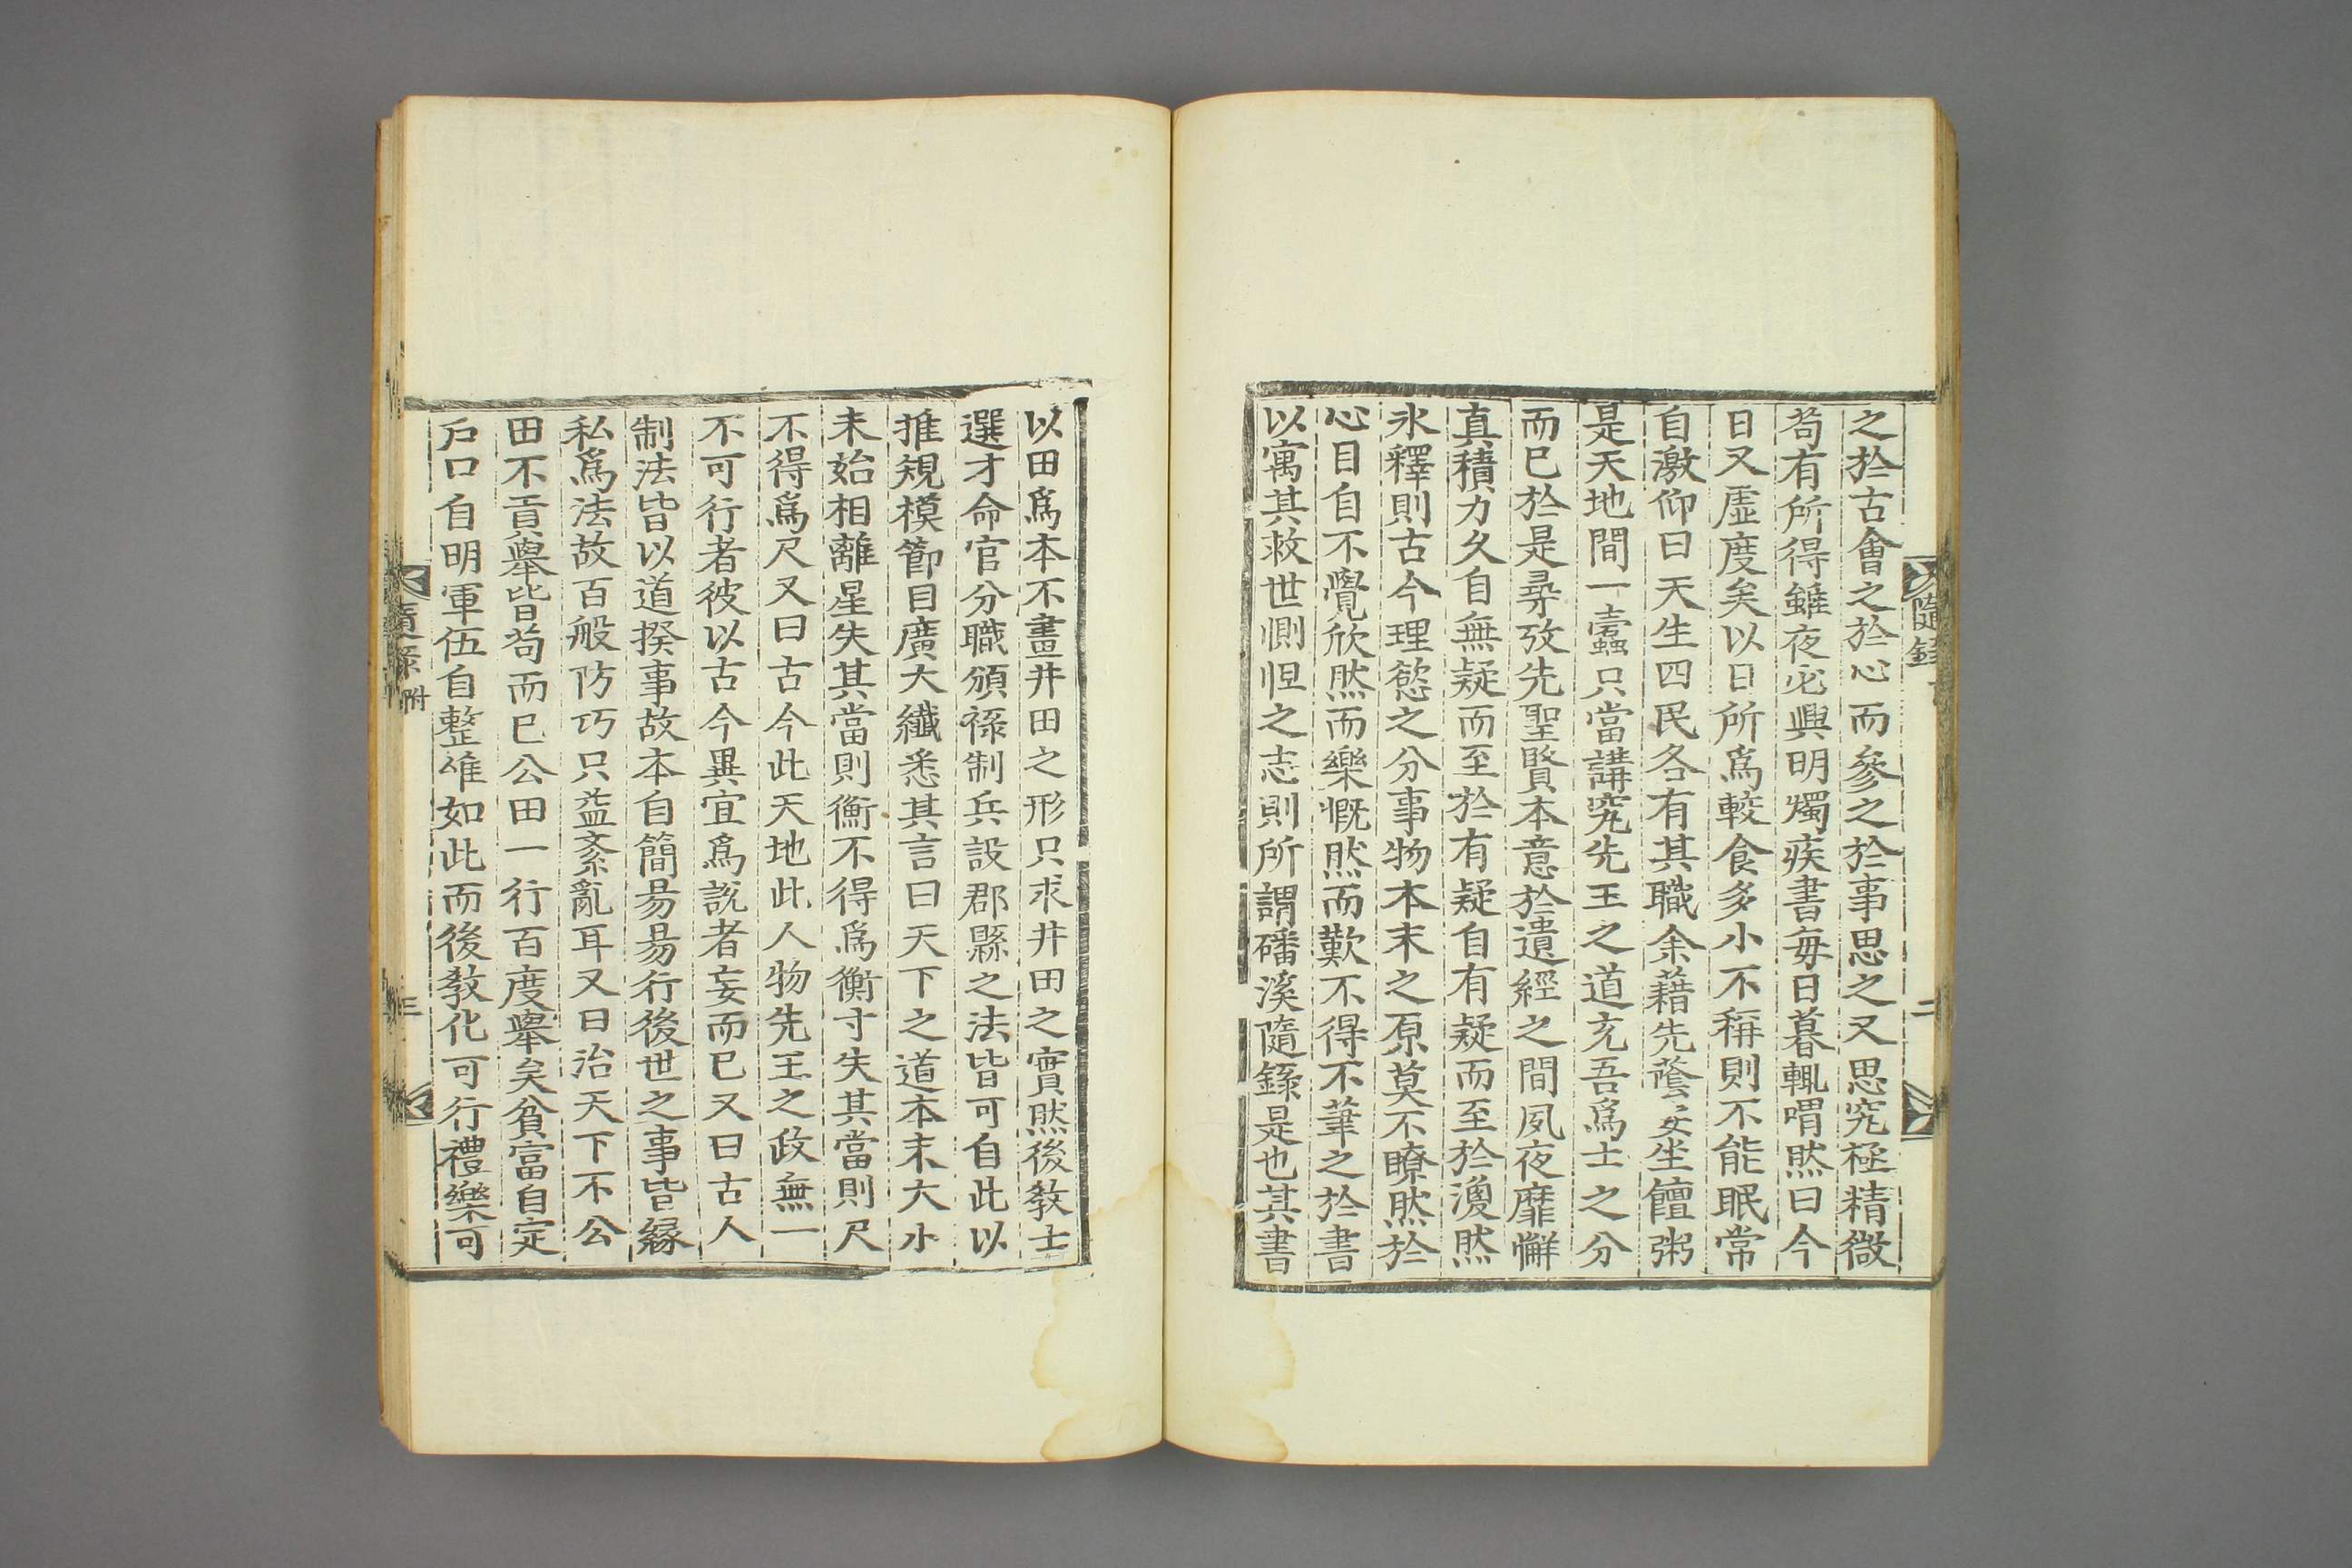 之於古會之於心而參之於事思之又思究極精微
苟有所得雖夜必興明燭疾書每日暮輒喟然曰今
日又虛度矣以日所爲較食多小不稱則不能眠常
自激仰曰天生四民各有其職余藉先蔭安坐饘粥
是天地間一蠹只當講究先王之道充吾爲士之分
而已於是尋攷先聖賢本意於遺經之間夙夜靡懈
真積力久自無疑而至於有疑自有疑而至於渙然
氷釋則古今理慾之分事物本末之原莫不瞭然於
心目自不覺欣然而樂慨然而歎不得不筆之於書
以寓其救世惻怛之志則所謂磻溪隨錄是也其書
隨錄
二
以田爲本不畫井田之形只求井田之實然後敎士
選才命官分職頒祿制兵設郡縣之法皆可自此以
推規模節目廣大纖悉其言曰天下之道本末大小
未始相離星失其當則衡不得爲衡寸失其當則尺
不得爲尺又曰古今此天地此人物先王之政無一
不可行者彼以古今異宜爲說者妄而已又曰古人
制法皆以道揆事故本自簡昜昜行後世之事皆緣
私爲法故百般防巧只益紊亂耳又曰治天下不公
田不貢擧皆苟而已公田一行百度擧矣貧富自定
戶口自明軍伍自整唯如此而後敎化可行禮樂可
附
三